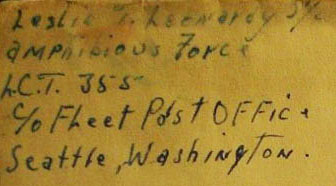 Leslie T. Leonardy S/c
Amphibious Force
L.C.T. 355
c/o Fleet Post Office
Seattle, Washington.